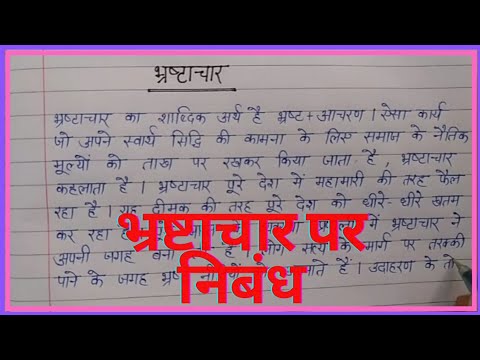 भ्रष्टाचार
भ्रष्टाचार का शाब्दिक अर्थ है भ्रष्ट + आचरण । ऐसा कार्य
जो अपने स्वार्थ सिद्धि की कामना के लिए समाज के नैतिक
मूल्यों को ताख पर रखकर किया जाता है, भ्रष्टाचार
कहलाता है । भ्रष्टाचार पूरे देश में महामारी की तरह फैल
रहा है । यह दीमक की तरह पूरे देश को धीरे- धीरे खतम
कर रहा है में भ्रष्टाचार ने
अपनी जगह बना है मार्ग पर तरक्की
पाने के जगह भ्रष्ट हैं । उदाहरण के तो
भ्रष्टाचार पर
निबंध